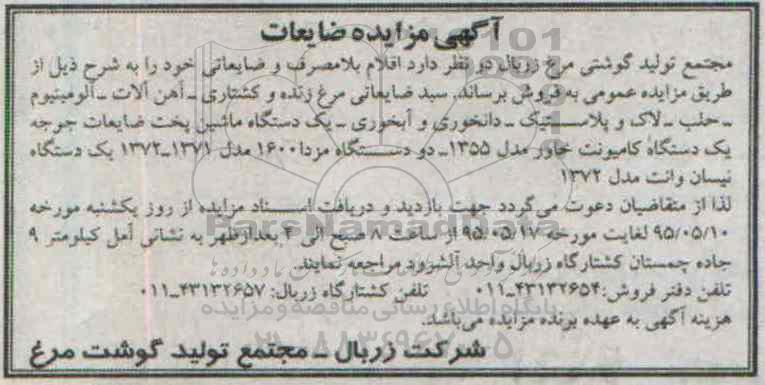 آگهی مزایده ضایعات
مجتمع تولید گوشتی مرغ زربال در نظر دارد اقلام بلامصرف و ضایعاتی خود را به شرح ذیل از
طریق مزایده عمومی به فروش برساند. سبد ضایعاتی مرغ زنده و کشتاری ـ آهن آلات ـ آلومینیوم
ـ حلب ـ لاک و پلاستیک ـ دانخوری و آبخوری ـ یک دستگاه ماشین پخت ضایعات جوجه
یک دستگاه کامیونت خاور مدل ۱۳۵۵ـ دو دستگاه مزدا ۱۶۰۰ مدل ۱۳۷۱ـ۱۳۷۲ یک دستگاه
نیسان وانت مدل ۱۳۷۲
لذا از متقاضیان دعوت می‌گردد جهت بازدید و دریافت اسناد مزایده از روز یکشنبه مورخه
۹۵/۰۵/۱۰ لغایت مورخه ۹۵/۰۵/۱۷ از ساعت ۸ صبح الی ۴ بعدازظهر به نشانی آمل کیلومتر ۹
جاده چمستان کشتارگاه زربال واحد آلشرود مراجعه نمایند.
تلفن دفتر فروش: ۴۳۱۳۲۶۵۴ـ۰۱۱ تلفن کشتارگاه زربال: ۴۳۱۳۲۶۵۷ـ۰۱۱
هزینه آگهی به عهده برنده مزایده می‌باشد.
شرکت زربال ـ مجتمع تولید گوشت مرغ
ParsNamadData
پایگاه اطلاع رسانی مناقصه و مزایده